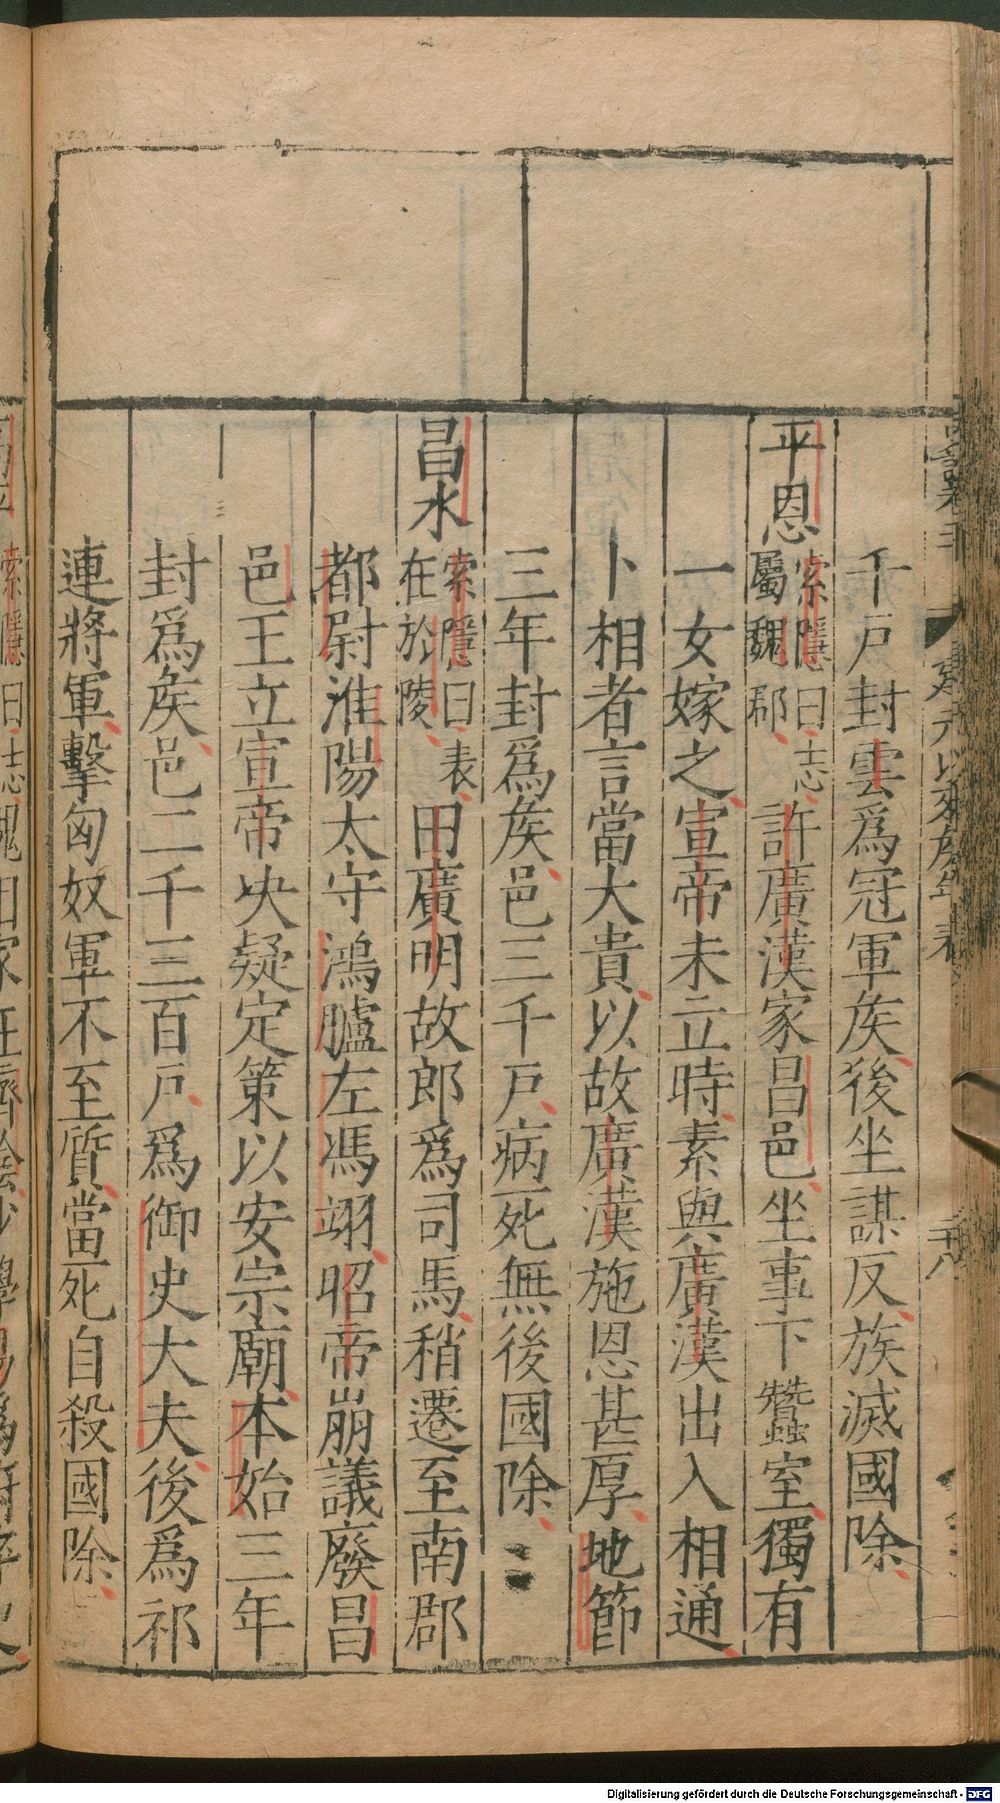 千戶封雲爲冠軍矦後坐謀反族滅國除
平恩 索隱曰志屬魏郡 許廣漢家昌邑坐事下蠶室獨有
一女嫁之宣帝未立時素與廣漢出入相通
卜相者言當大貴以故廣漢施恩甚厚地節
三年封爲矦邑三千戶病死無後國除
昌水 索隱曰表在於陵 田廣明故郎爲司馬稍遷至南郡
都尉淮陽太守鴻臚左馮翊昭帝崩議廢昌
邑王立宣帝決疑定策以安宗廟本始三年
封爲矦邑二千三百戶爲御史大夫後爲祁
連將軍擊匈奴軍不至質當死自殺國除
建元以來矦年表
二十八
Digitalisierung gefördert durch die Deutsche Forschungsgemeinschaft - DFG